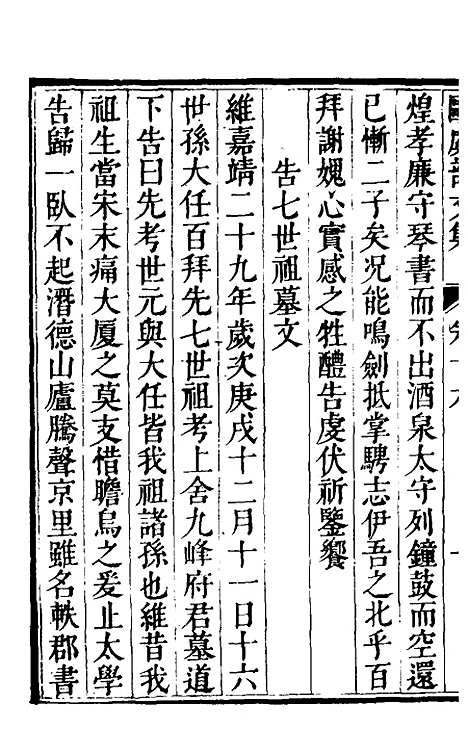 煌孝廉守琴書而不出酒泉太守列鐘鼓而空還
已慚二子矣况能鳴劍抵掌騁志伊吾之北乎百
拜謝媿心實感之牲醴告虔伏祈鑒饗
告七世祖墓文
維嘉靖二十九年歲次庚戌十二月十一日十六
世孫大任百拜先七世祖考上舍九峰府君墓道
下告曰先考世元與大任皆我祖諸孫也維昔我
祖生當宋末痛大厦之莫支惜瞻烏之爰止太學
告歸一臥不起潛德山廬騰聲京里雖名軼郡書